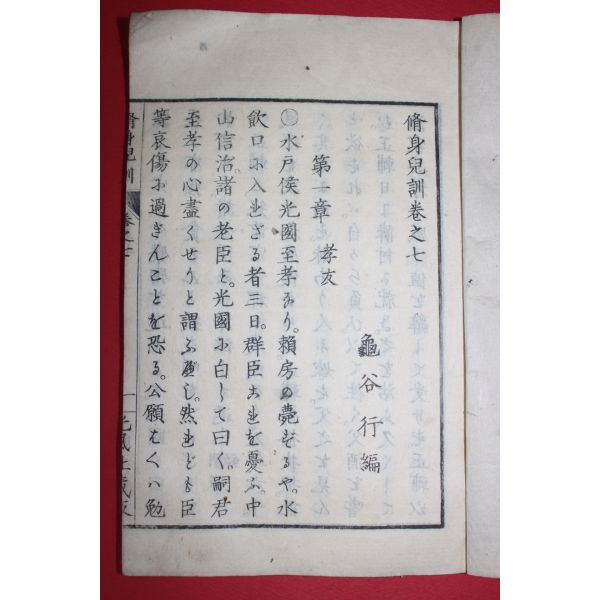 脩身兒訓卷之七
龜谷行編
第一章 孝友
○水戸侯光國至孝なり。賴房の薨ずるや。水
飲口に入れざる者三日。群臣これを憂ふ。中
山信治。諸の老臣と。光國に白して曰く。嗣君
至孝の心盡くせりと謂ふべし。然れども臣
等哀傷に過ぎんことを恐る。公願はくハ勉
脩身兒訓 卷之七 一 光風社藏版